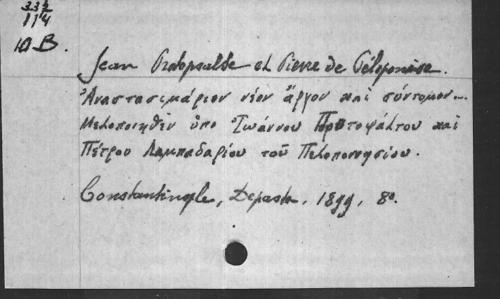 332
114
10 B.
Jean Protopsalte et Pierre de Péloponèse.
Ἀναστασιμάριον νέον ἄργον καὶ σύντομον...
Μελοποιηθὲν ὑπο Ἰωάννου Πρωτοψάλτου καὶ
Πέτρου Λαμπαδαρίου τοῦ Πελοποννησίου.
Constantinople, Depasta, 1899, 8º.